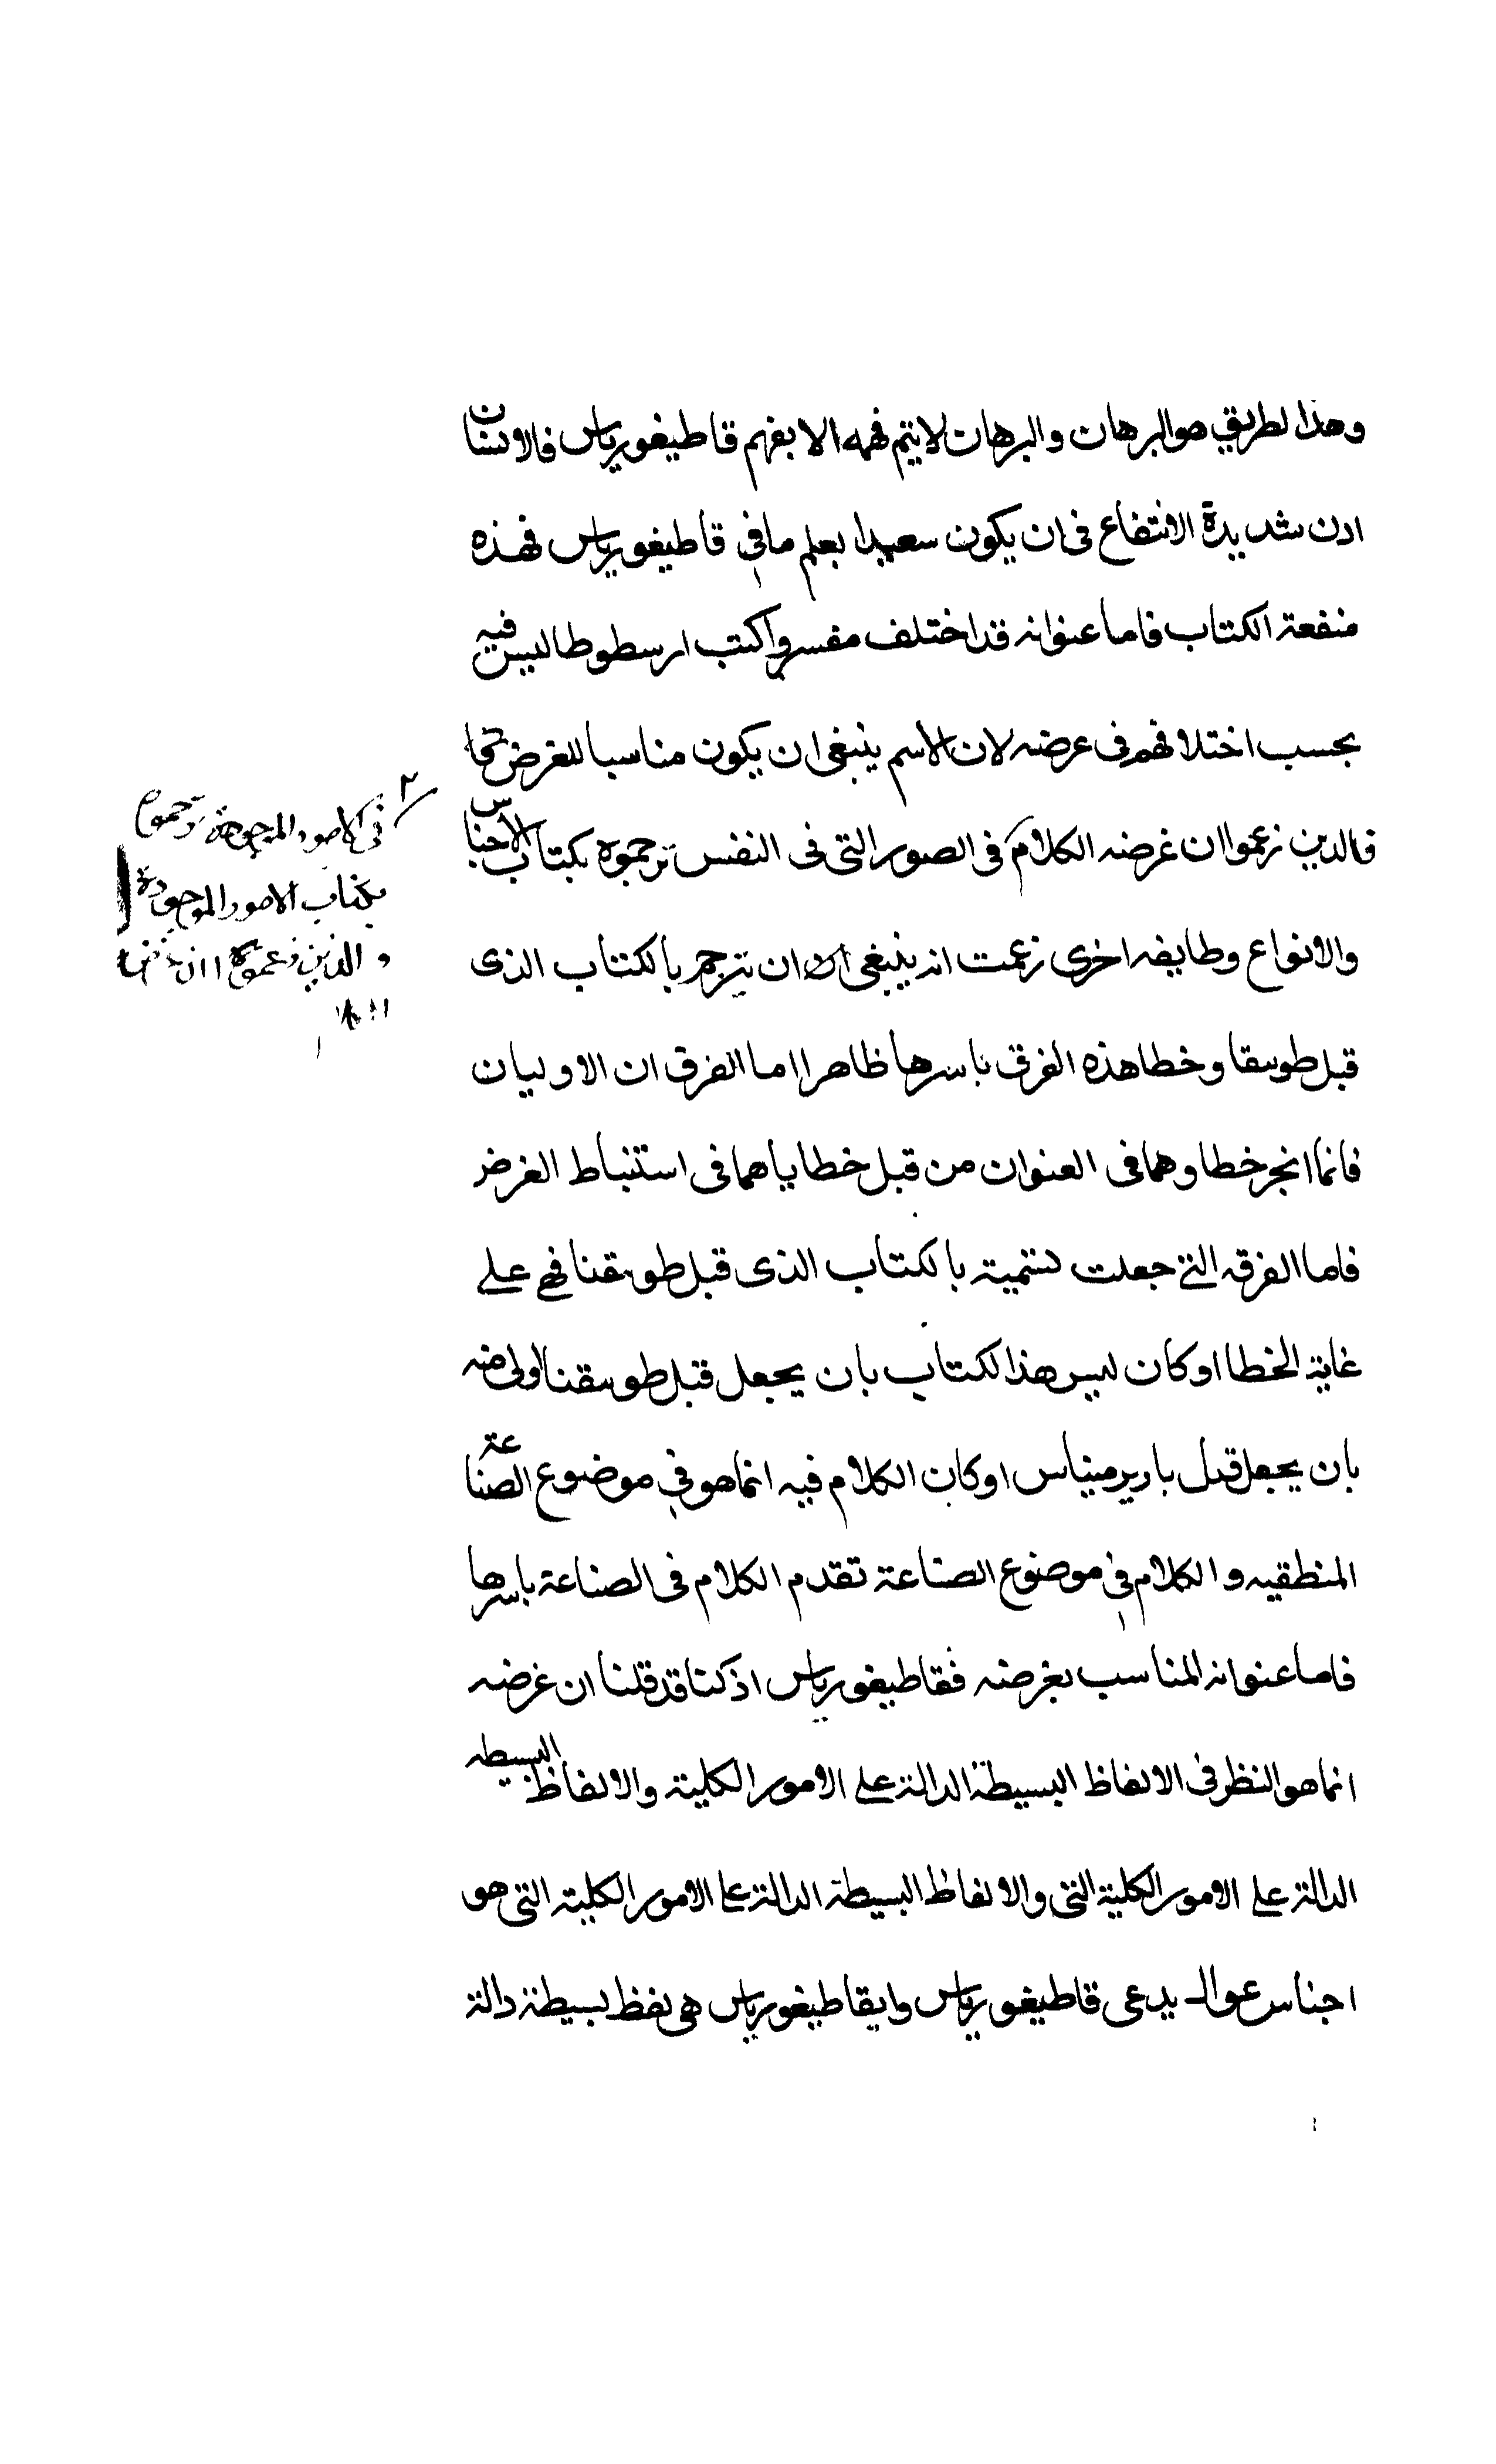 وهذا لطريق هو البرهان والبرهان لا يتم فهمه الا بفهم قاطيغورياس فالانسان
ادن شديدة الانتفاع فى ان يكون سعيدا بعلم ما في قاطيغورياس فهذه
منفعة الكتاب فاما عنوانه قد اختلف مفسروا كتب ارسطوطاليس فيه
بحسب اختلافهم فى عرضه لان الاسم ينبغى ان يكون مناسبا للغرض
فالدين زعموا ان غرضه الكلام فى الصور التى فى النفس ترجموه بكتاب الاجناس
والانواع وطايفه اخرى زعمت انه ينبغى ان يترجم بالكتاب الذى
قبل طوبيقا وخطا هذه الفرق باسرها ظاهرا اما الفرق ان الاوليان
فانما انجر خطاوهما فى العنوان من قبل خطاياهما فى استنباط الغرض
فاما الفرقه التي جعلت تسميته بالكتاب الذى قبل طوبيقنا فهي على
غاية الخطا اوكان ليس هذا لكتاب بان يجعل قبل طوبيقنا اولى منه
بان يجعل قبل باريرمينياس اوكان الكلام فيه انما هو في موضوع الصناعة
المنطقيه والكلام في موضوع الصناعة تقدم الكلام فى الصناعة باسرها
فاما عنوانه المناسب بغرضه فقاطيغورياس اذ كنا قد قلنا ان غرضه
انما هو النظر فى الالفاظ البسيطة الدالة على الامور الكلية والالفاظ البسيطه
الدالة على الامور الكلية التى والالفاظ البسيطة الدالة على الامور الكلية التى هو
اجناس عوال يدعى قاطيغورياس وايقاطيغورياس هى لفظ بسيطة دالة
فى الامور الموجودة ترجموه
بكتاب الامور الموجودة
والذين زعموا ان